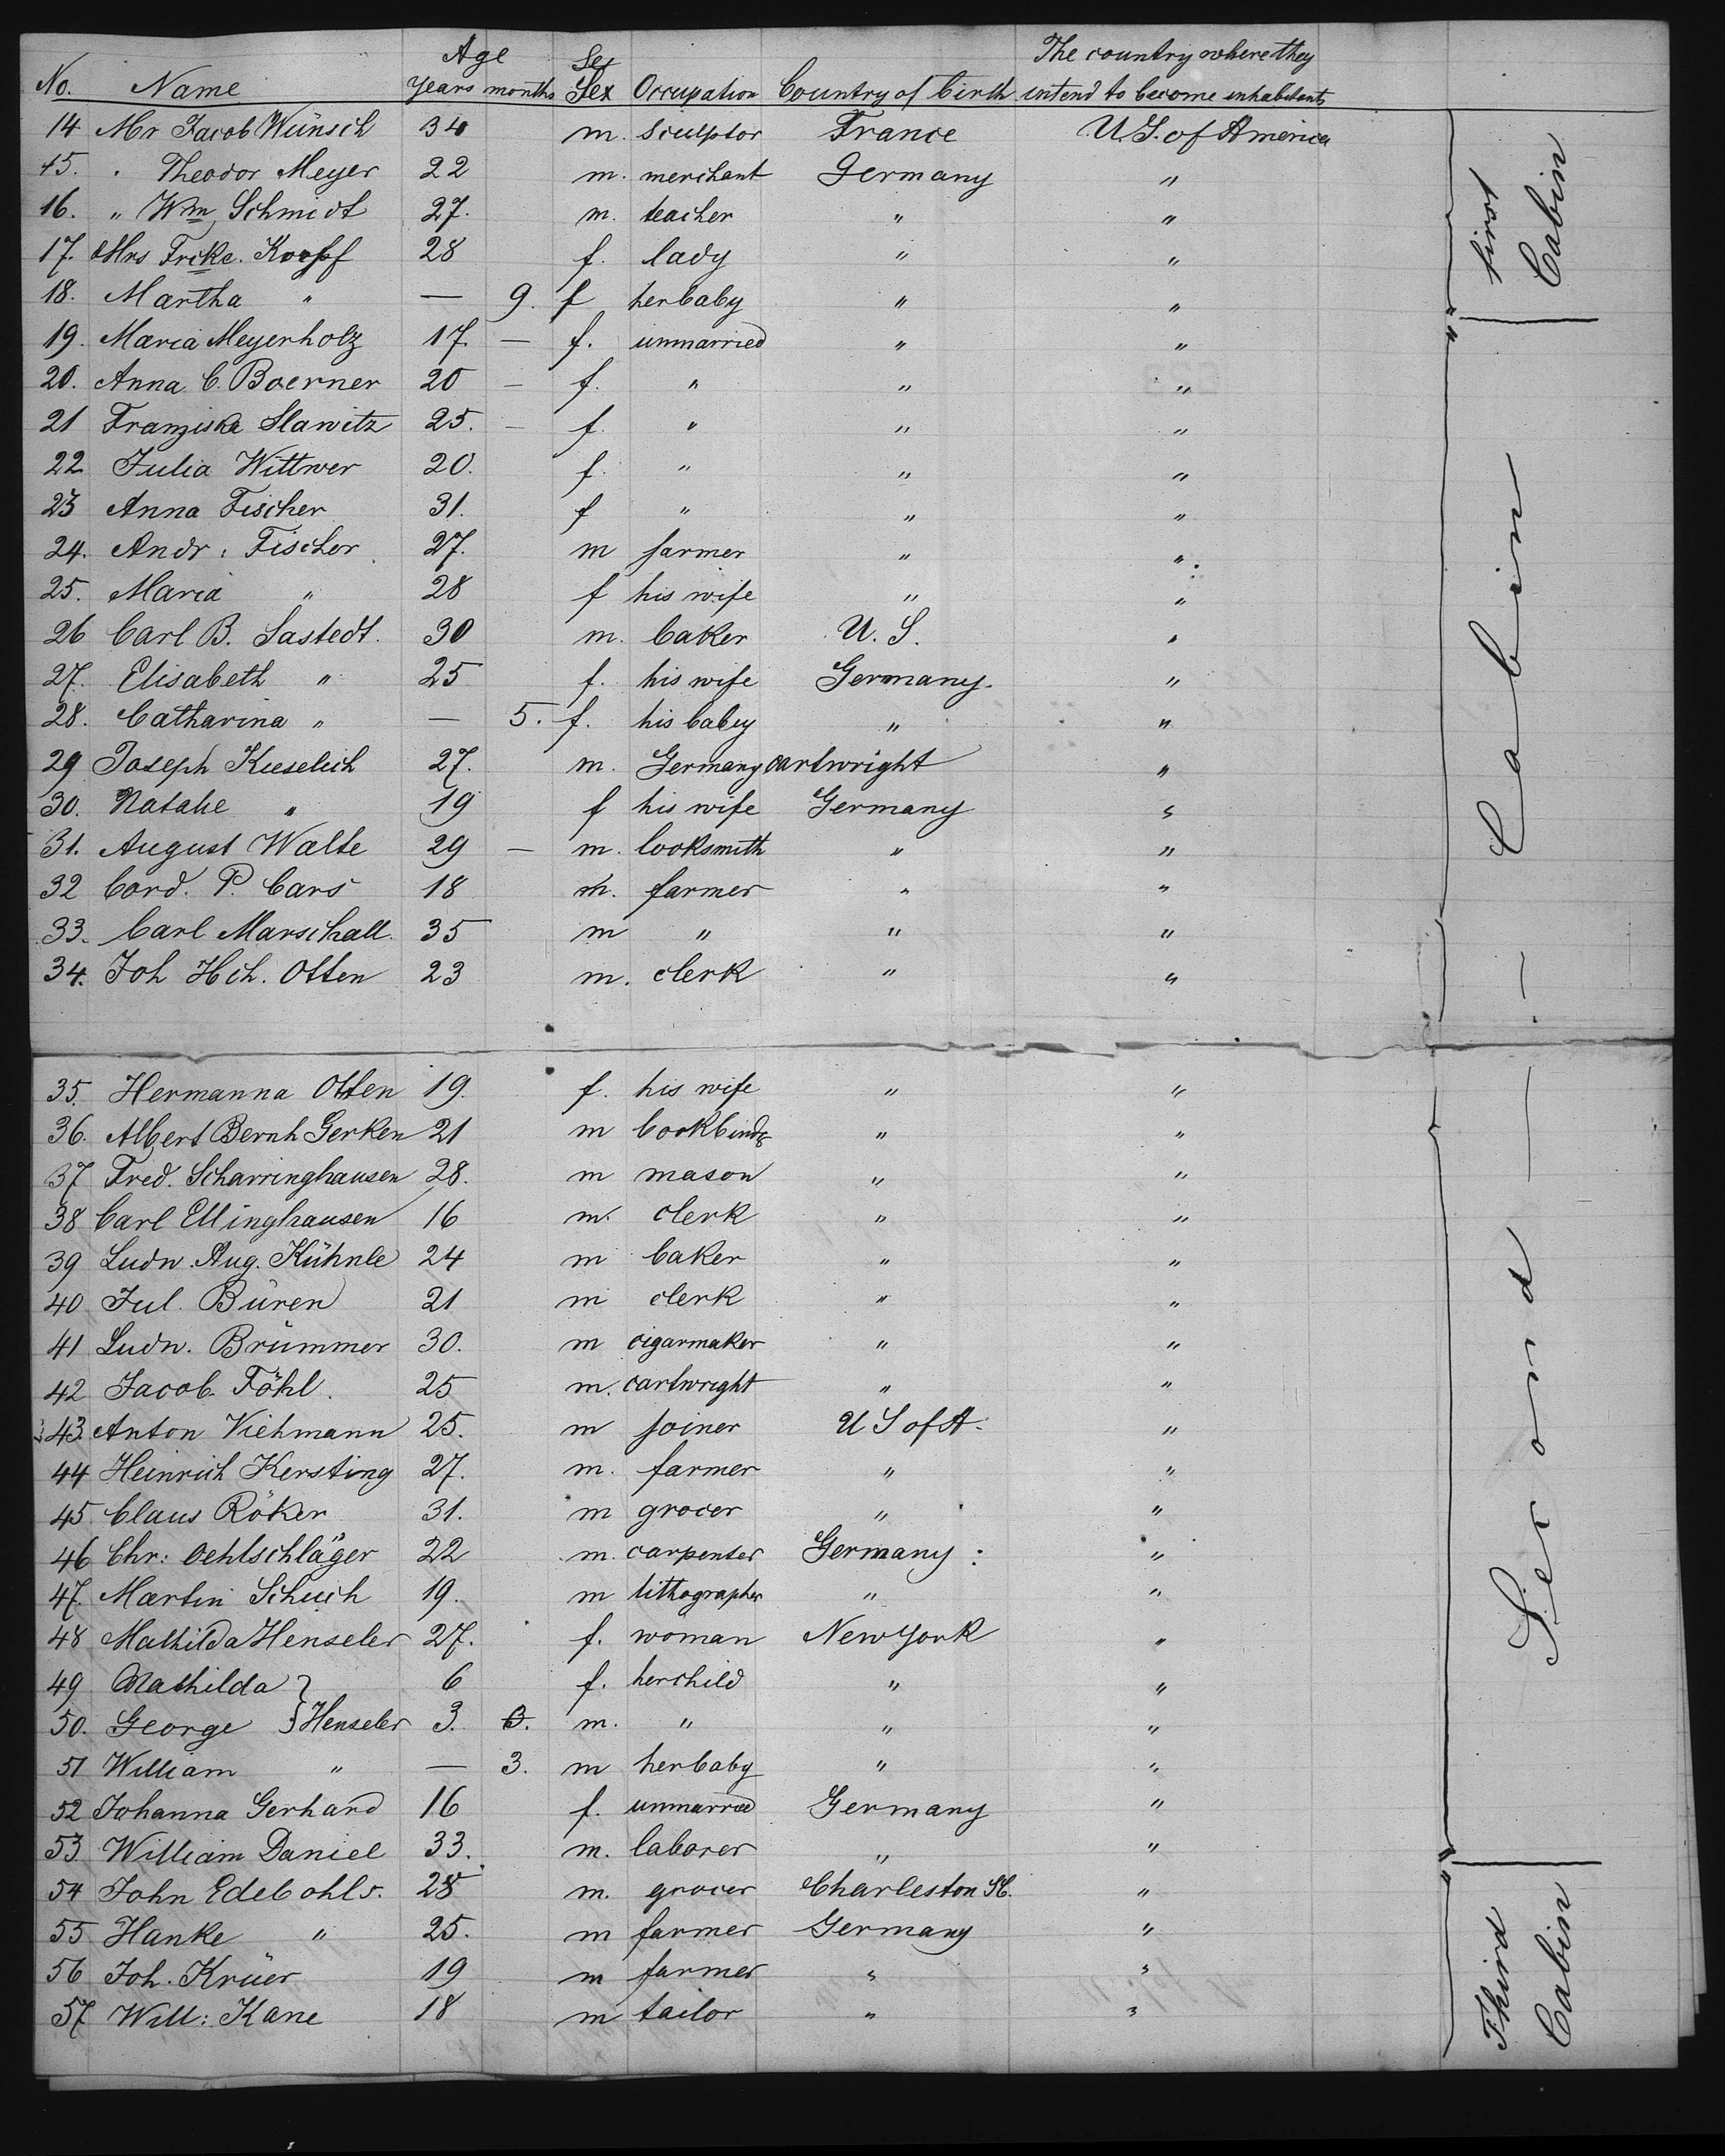 Age Sex The country where they
No. Name years months Sex Occupation Country of birth intend to become inhabitants
14 Mr Jacob Wünsch 34 m. sculptor France U.S. of America
15. " Theodor Meyer 22 m. merchant Germany "
16. " Wm Schmidt 27. m. teacher " "
17. Mrs Frcke. Kopf 28 f. lady " "
18. Martha " — 9. f her baby " "
19. Maria Meyerholz 17. — f. unmarried " "
20. Anna C. Boerner 20 — f. " " "
21 Franziska Slawitz 25. — f. " " "
22 Julia Wittwer 20. f. " " "
23 Anna Fischer 31. f " " "
24. Andr. Fischer 27. m farmer " "
25. Maria " 28 f his wife " "
26 Carl B. Sastedt. 30 m. baker U. S. "
27. Elisabeth " 25 f. his wife Germany. "
28. Catharina " — 5. f. his baby " "
29 Joseph Kieselich 27. m. Germany cartwright "
30. Natalie " 19 f his wife Germany "
31. August Walte 29 — m. locksmith " "
32 Cord. P. Cars 18 m. farmer " "
33. Carl Marschall. 35 m " " "
34. Joh Hch. Otten 23 m. clerk " "
35. Hermanna Otten 19. f. his wife " "
36. Albert Bernh Gerken 21 m bookbinder " "
37 Fred. Scharringhausen 28. m mason " "
38 Carl Ellinghausen 16 m. clerk " "
39 Ludw. Aug. Kühnle 24 m baker " "
40 Jul. Büren 21 m clerk " "
41 Ludw. Brümmer 30. m cigarmaker " "
42 Jacob Föhl. 25 m. cartwright " "
43. Anton Viehmann 25. m joiner U S of A. "
44 Heinrich Kersting 27. m. farmer " "
45 Claus Röker 31. m grocer " "
46 Chr: Oehlschläger 22 m. carpenter Germany : "
47. Martin Schuch 19. m lithographer " "
48 Mathilda Henseler 27. f. woman New York "
49 Mathilda } 6 f. her child " "
50. George } Henseler 3. 3. m. " " "
51 William " — 3. m her baby " "
52 Johanna Gerhard 16 f. unmarried Germany "
53. William Daniel 33. m. laborer " "
54 John Edebohls. 28 m. grocer Charleston SC. "
55 Hanke " 25. m farmer Germany "
56 Joh. Krüer 19 m farmer " "
57 Will: Kane 18 m tailor " "
first
Cabin
Second — Cabin
Third
Cabin